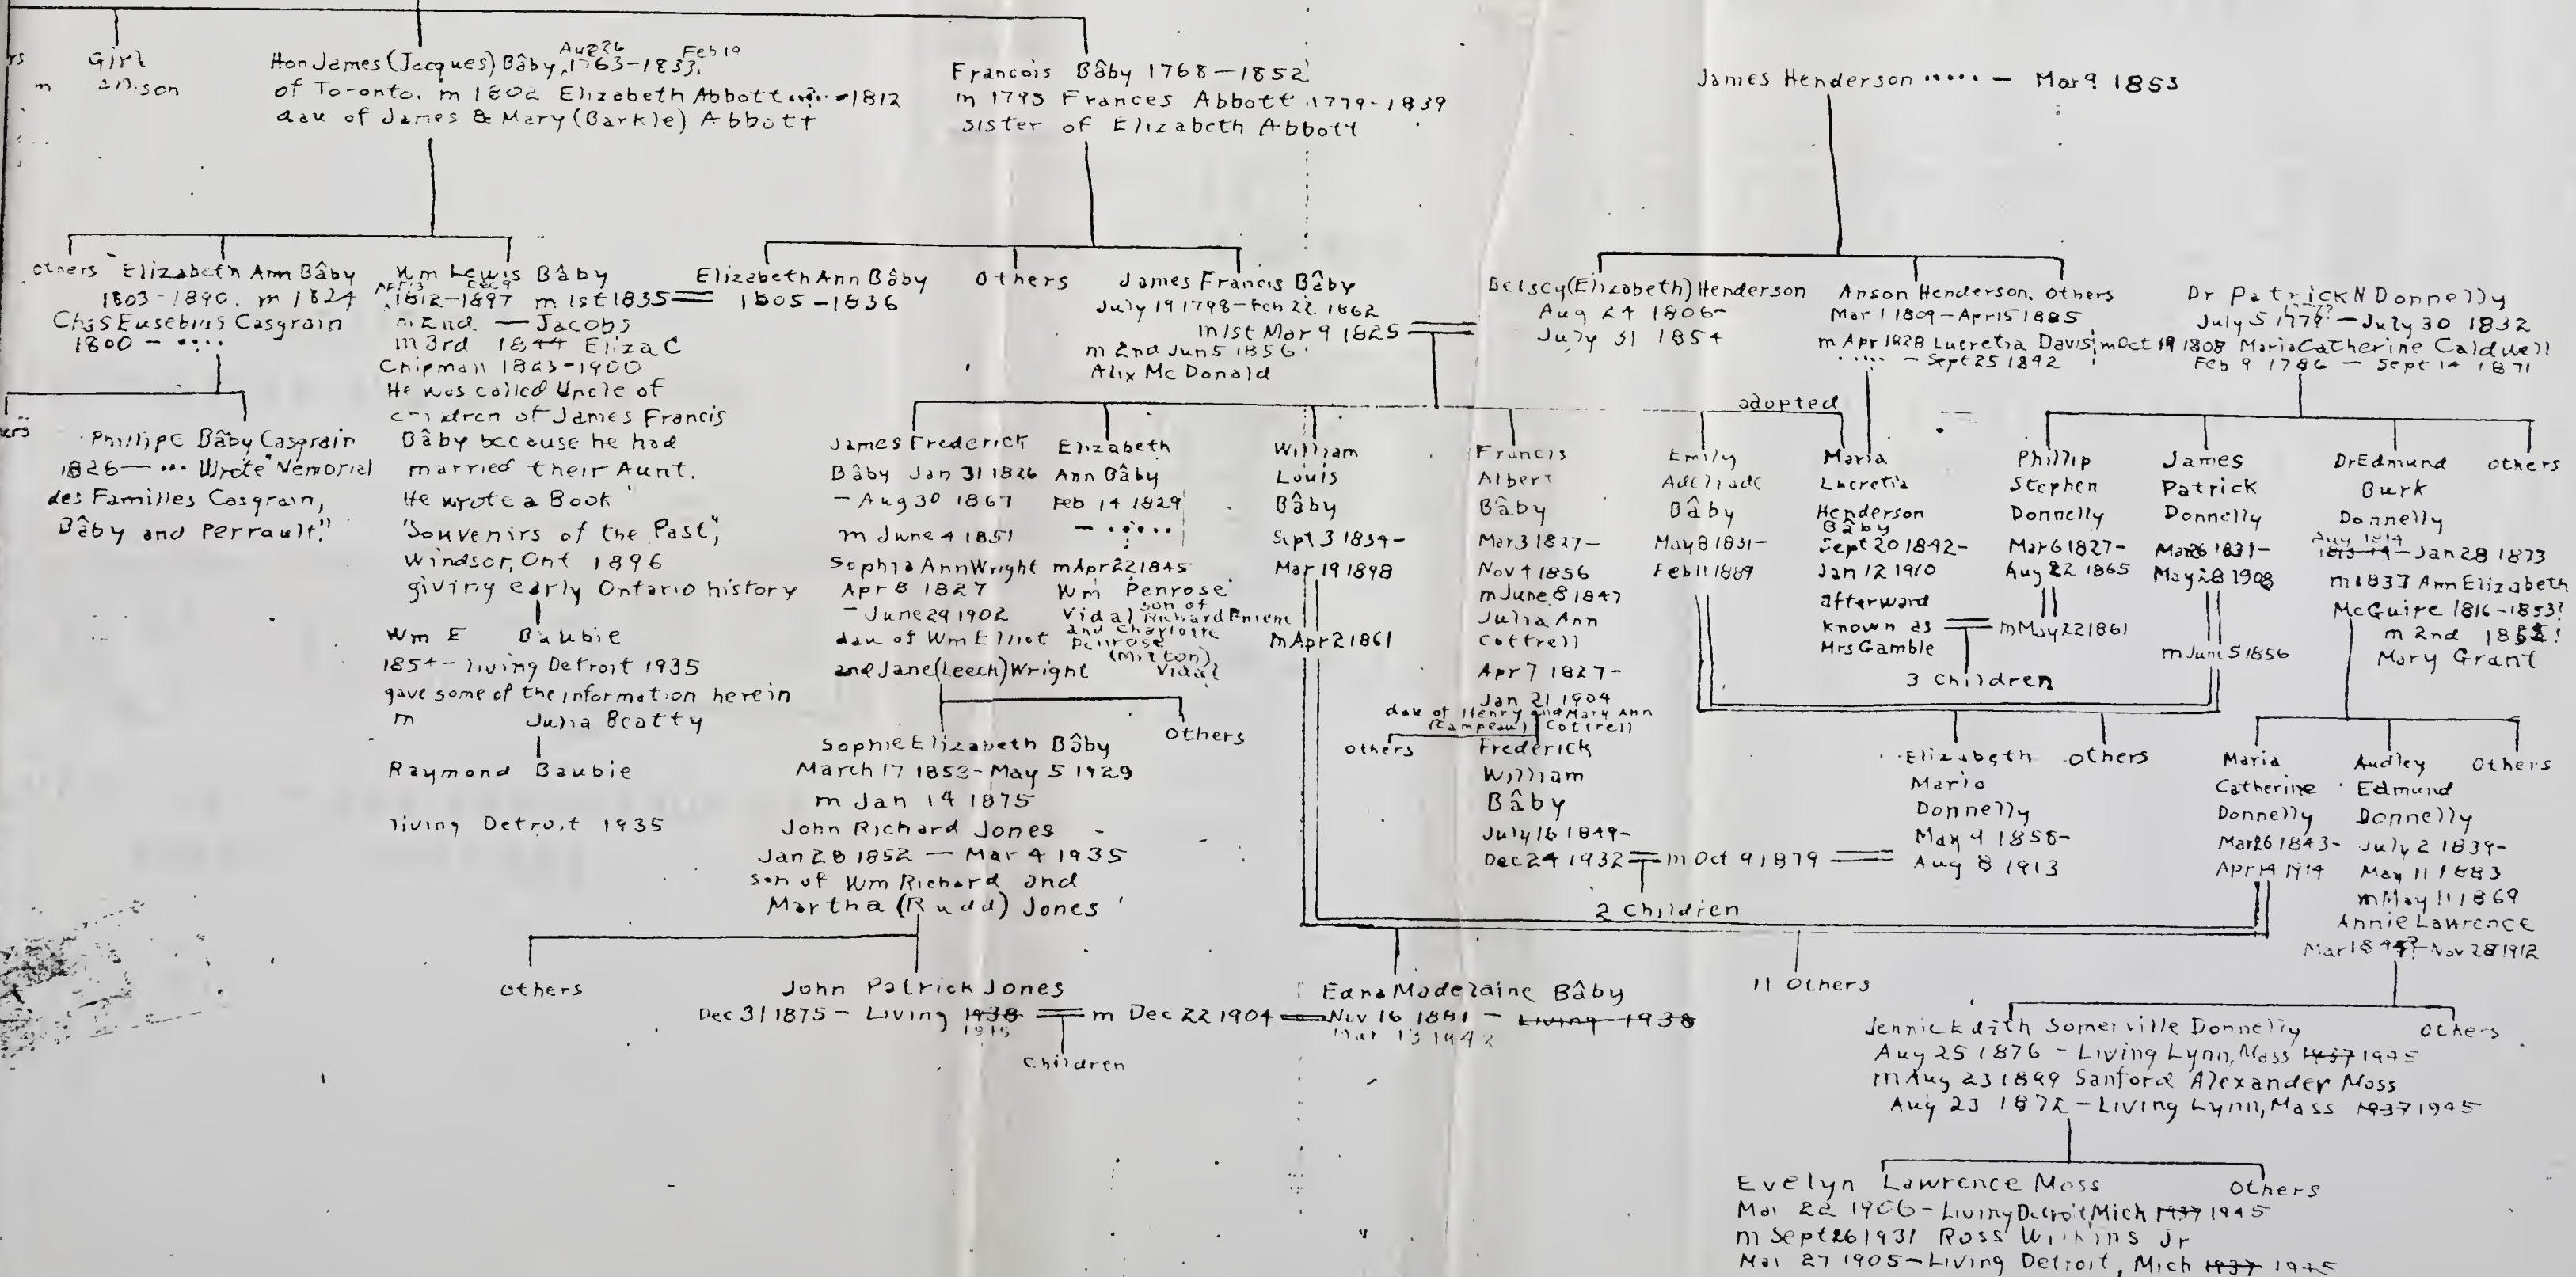 Girl
m
Hon James (Jacques) Bâby, Aug 26 1763-1833, Feb 19
of Toronto. m 1802 Elizabeth Abbott ..... -1812
dau of James & Mary (Barkle) Abbott
Francois Bâby 1768-1852
m 1795 Frances Abbott 1779-1839
sister of Elizabeth Abbott
James Henderson ..... - Mar 9 1853
others
Elizabeth Ann Bâby
1803-1890. m 1824
Chas Eusebius Casgrain
1800 - ....
Wm Lewis Bâby
1812-1897 m 1st 1835
m 2nd — Jacobs
m 3rd 1844 Eliza C
Chipman 1823-1900
He was called Uncle of
children of James Francis
Bâby because he had
married their Aunt.
He wrote a Book
"Souvenirs of the Past",
Windsor, Ont 1896
giving early Ontario history
Elizabeth Ann Bâby
1805-1836
Others
James Francis Bâby
July 19 1798-Feb 22 1862
m 1st Mar 9 1825
m 2nd Jun 5 1856
Alix McDonald
Betscy (Elizabeth) Henderson
Aug 24 1806-
July 31 1854
Anson Henderson. Others
Mar 1 1809-Apr 15 1885
m Apr 1828 Lucretia Davis
..... - Sept 25 1842
Dr Patrick N Donnelly
July 5 1779 - July 30 1832
m Oct 19 1808 Maria Catherine Caldwell
Feb 9 1786 - Sept 14 1871
Phillipe Bâby Casgrain
1826— ... Wrote "Memorial
des Familles Casgrain,
Bâby and Perrault."
Wm E Baubie
1854- living Detroit 1935
gave some of the information herein
m Julia Beatty
Raymond Baubie
living Detroit 1935
James Frederick
Bâby Jan 31 1826
- Aug 30 1867
m June 4 1851
Sophia Ann Wright
Apr 8 1827
- June 29 1902
dau of Wm Elliot
and Jane (Leech) Wright
Elizabeth
Ann Bâby
Feb 14 1829
- .....
m Apr 22 1845
Wm Penrose
Vidal son of Richard Emeric
and Charlotte
Penrose
(Mitton)
Vidal
William
Louis
Bâby
Sept 3 1834-
Mar 19 1898
m Apr 2 1861
Francis
Albert
Bâby
Mar 3 1827-
Nov 4 1856
m June 8 1847
Julia Ann
Cottrell
Apr 7 1827-
Jan 21 1904
dau of Henry and Mary Ann
(Campeau) Cottrell
Emily
Adeliade
Bâby
May 8 1831-
Feb 11 1889
adopted
Maria
Lucretia
Henderson
Bâby
Sept 20 1842-
Jan 12 1910
afterward
known as
Mrs Gamble
Phillip
Stephen
Donnelly
Mar 6 1827-
Aug 22 1865
m May 22 1861
3 Children
James
Patrick
Donnelly
Mar 26 1831-
May 28 1908
m Jun 5 1856
Dr Edmund
Burk
Donnelly
Aug 1814
1813-14-Jan 28 1873
m 1837 Ann Elizabeth
McGuire 1816-1853?
m 2nd
Mary Grant
others
Sophie Elizabeth Bâby
March 17 1853-May 5 1929
m Jan 14 1875
John Richard Jones
Jan 28 1852 - Mar 4 1935
son of Wm Richard and
Martha (Rudd) Jones
Others
others
Frederick
William
Bâby
July 16 1849-
Dec 24 1932 m Oct 9 1879
2 Children
Elizabeth
Maria
Donnelly
May 9 1858-
Aug 8 1913
others
Maria
Catherine
Donnelly
Mar 26 1843-
Apr 14 1914
Audley
Edmund
Donnelly
July 2 1839-
May 11 1883
m May 11 1869
Annie Lawrence
Nov 28 1912
Others
others
John Patrick Jones
Dec 31 1875 - Living 1938 m Dec 22 1904
children
Edna Madelaine Bâby
Nov 16 1881 - Living 1938
Mar 13 1942
11 Others
Jennie Edith Somerville Donnelly
Aug 25 1876 - Living Lynn, Mass 1937 1945
m Aug 23 1899 Sanford Alexander Moss
Aug 23 1872 - Living Lynn, Mass 1937 1945
others
Evelyn Lawrence Moss
Mar 22 1906-Living Detroit, Mich 1937 1945
m Sept 26 1931 Ross Wilkins Jr
Mar 27 1905-Living Detroit, Mich 1937 1945
Others